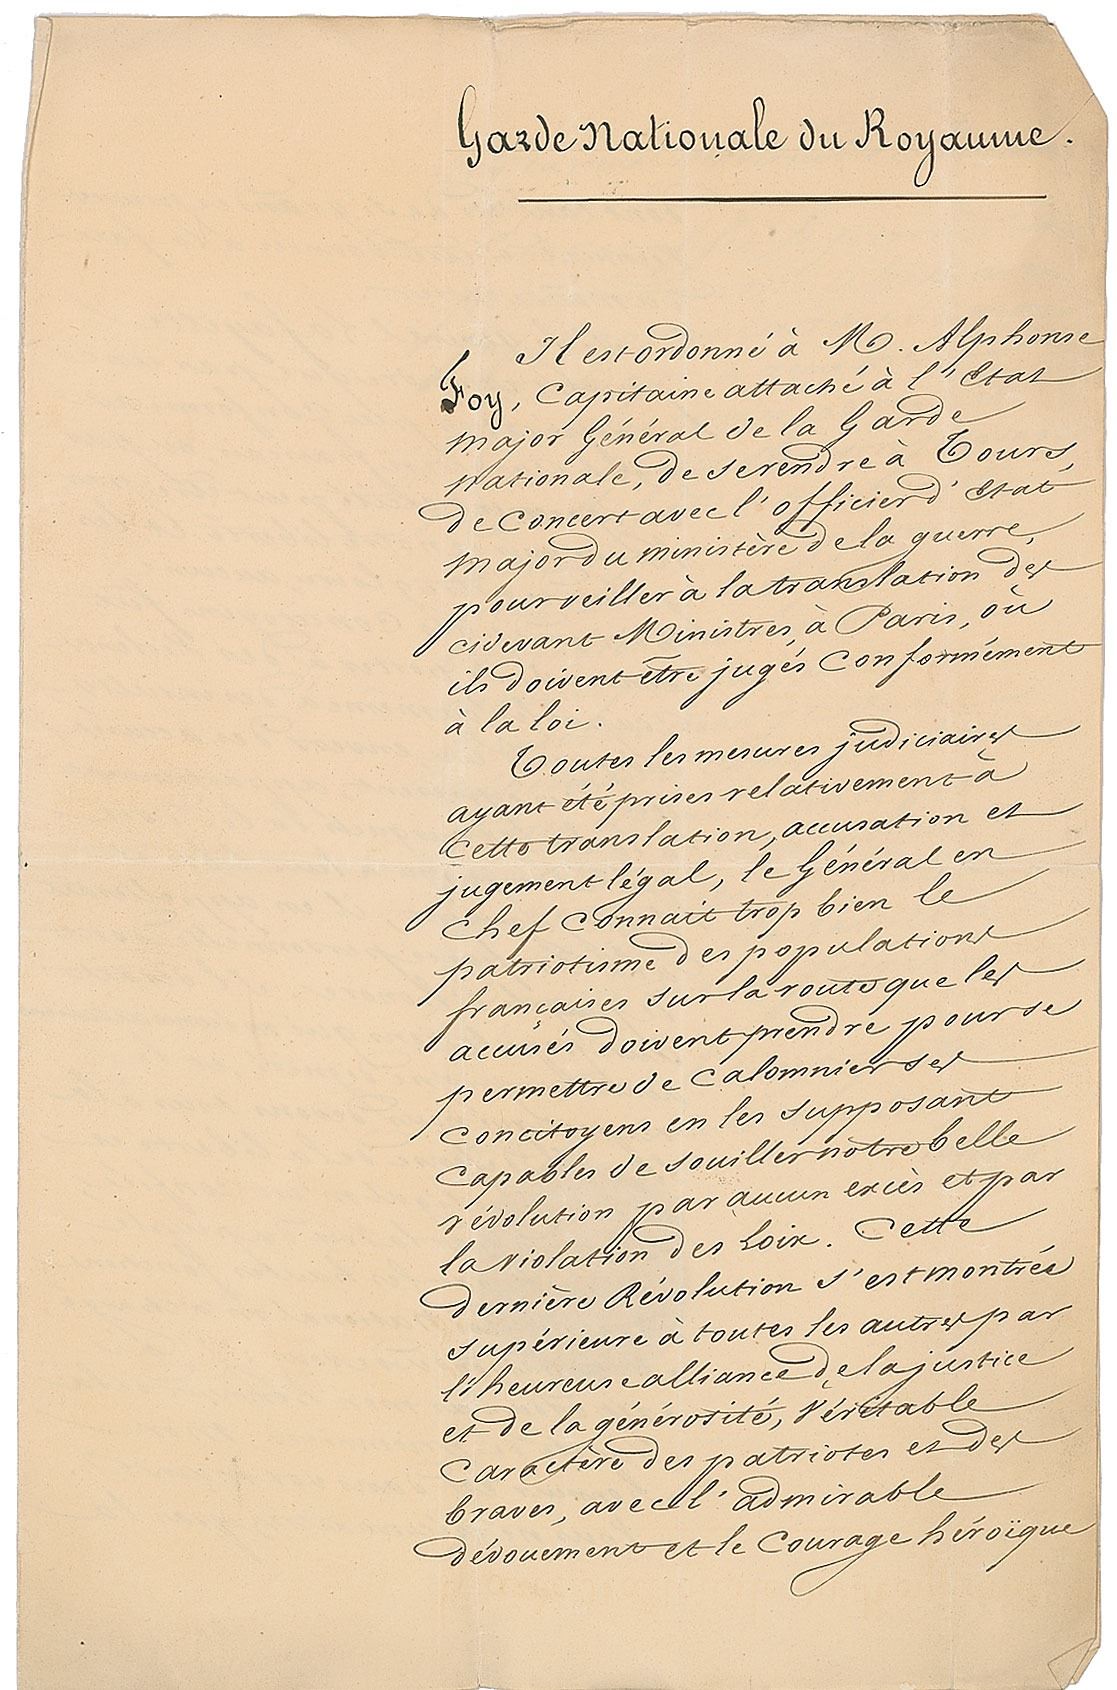 Garde Nationale du Royaume.
Il est ordonné à M. Alphonse
Foy, Capitaine attaché à l'Etat
major Général de la Garde
nationale, de se rendre à Tours,
de concert avec l'officier d'Etat
major du ministère de la guerre,
pour veiller à la translation des
cidevant Ministres, à Paris, où
ils doivent être jugés conformément
à la loi.
Toutes les mesures judiciaires
ayant été prises relativement à
cette translation, accusation et
jugement légal, le Général en
chef connait trop bien le
patriotisme des populations
françaises sur la route que les
accusés doivent prendre pour se
permettre de calomnier ses
concitoyens en les supposant
capables de souiller notre belle
révolution par aucun excès et par
la violation des Loix. Cette
dernière Révolution s'est montrée
supérieure à toutes les autres par
l'heureuse alliance de la justice
et de la générosité, véritable
caractère des patriotes et des
braves, avec l'admirable
dévouement et le courage héroïque